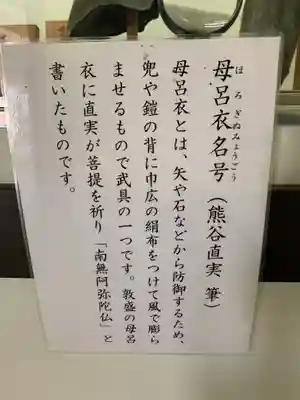 ほろぎぬみょうごう
母呂衣名号（熊谷直実 筆）
母呂衣とは、矢や石などから防御するため、
兜や鎧の背に巾広の絹布をつけて風で膨ら
ませるもので武具の一つです。敦盛の母呂
衣に直実が菩提を祈り「南無阿弥陀仏」と
書いたものです。